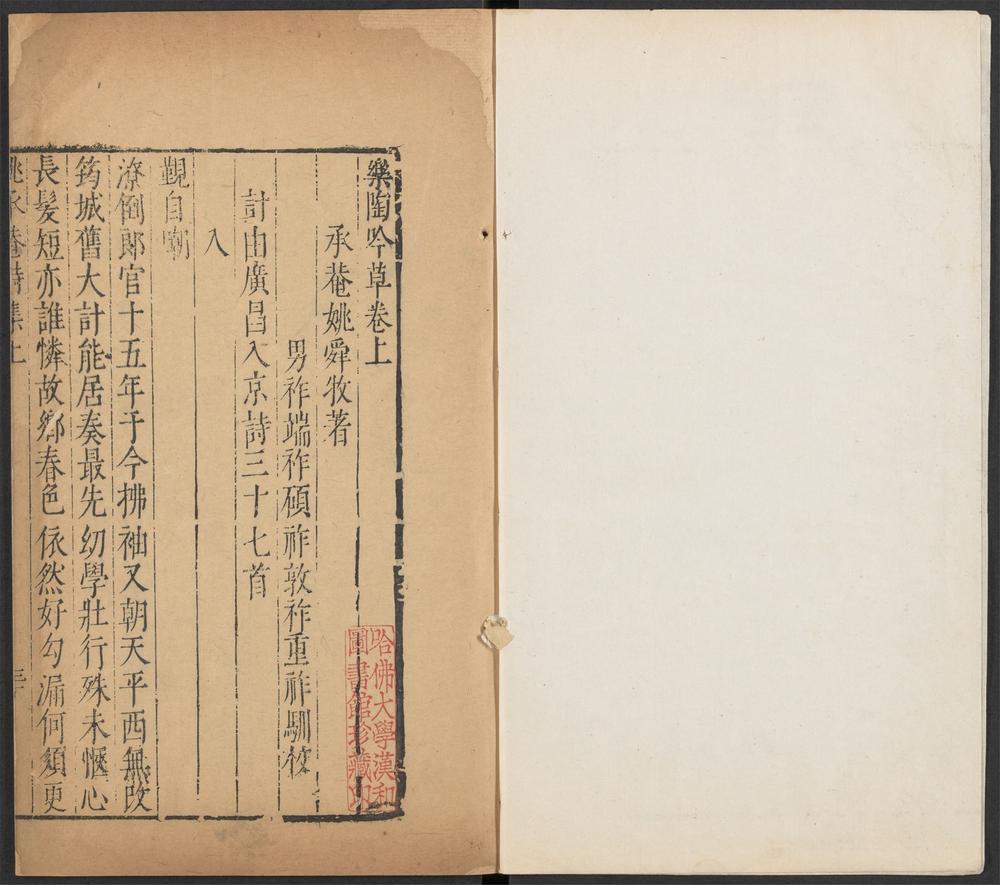 樂陶吟草卷上
承菴姚舜牧著
男祚端祚碩祚敦祚重祚馴校
計由廣昌入京詩三十七首
入
覲自嘲
潦倒郎官十五年于今拂袖又朝天平西無改
筠城舊大計能居奏最先幼學壯行殊未愜心
長髮短亦誰憐故鄉春色依然好勾漏何須更
姚承菴詩集上
哈佛大學漢和
圖書館珍藏印